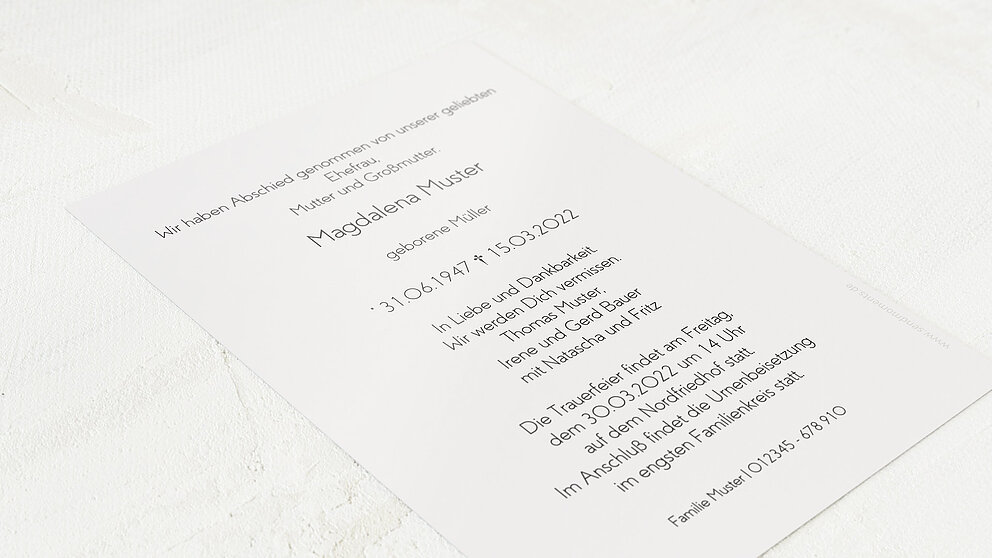 Wir haben Abschied genommen von unserer geliebten
Ehefrau,
Mutter und Großmutter,
Magdalena Muster
geborene Müller
* 31.06.1947 † 15.03.2022
In Liebe und Dankbarkeit
Wir werden Dich vermissen.
Thomas Muster,
Irene und Gerd Bauer
mit Natascha und Fritz
Die Trauerfeier findet am Freitag,
dem 30.03.2022 um 14 Uhr
auf dem Nordfriedhof statt.
Im Anschluß findet die Urnenbeisetzung
im engsten Familienkreis statt.
Familie Muster | 012345 - 678 910
www.sendmoments.de